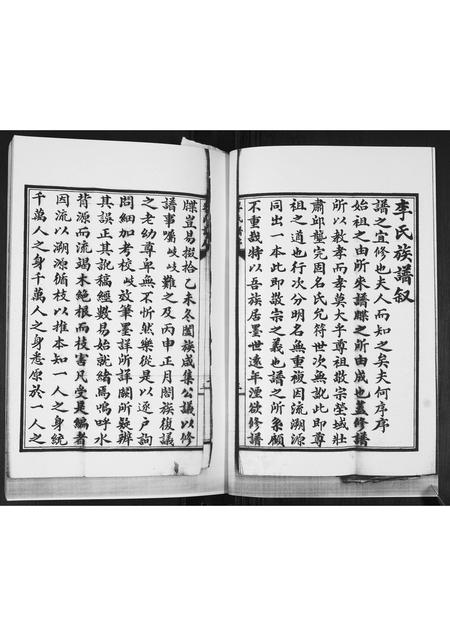 李氏族譜叙
譜之宜修也夫人而知之矣夫何序序
始祖之由所來譜牒之所由成也蓋修譜
所以教孝而孝莫大乎尊祖敬宗塋域壯
肅邱壟完固名氏允符世次無訛此即尊
祖之道也行次分明名無重複因流溯源
同出一本此即敬宗之義也譜之所系顧
不重哉特以吾族居墨世遠年湮欲修譜
牒豈易掇拾乙未冬闔族咸集公議以修
譜事囑岐岐難之及丙申正月闔族復議
之老幼尊卑無不忻然樂從是以逐戶詢
問細加考校岐效筆墨詳所詳闕所疑辨
其誤正其訛稿經數易始就緒焉嗚呼水
背源而流竭木絕根而枝害凡受是編者
因流以溯源循枝以推本知一人之身統
千萬人之身千萬人之身悉原於一人之